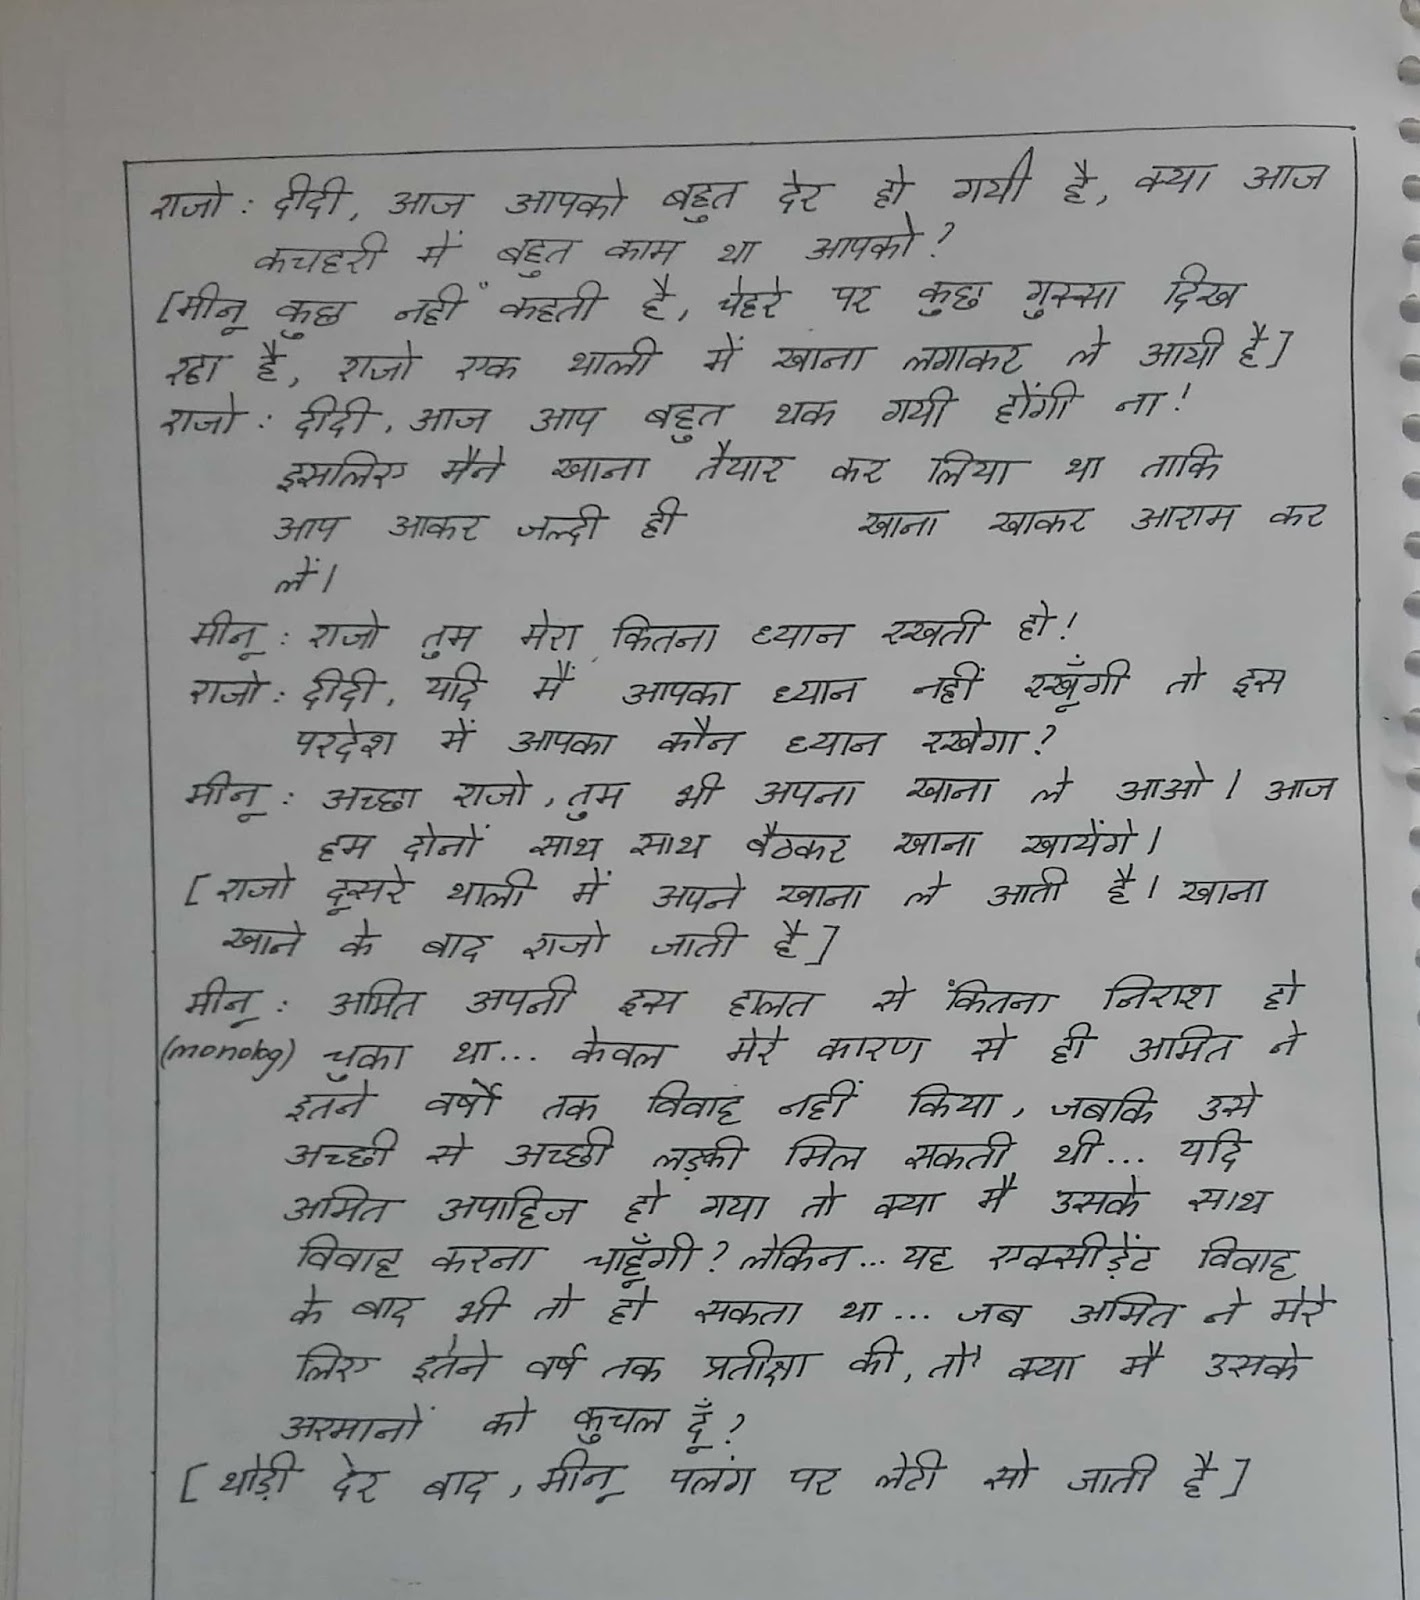 राजो : दीदी, आज आपको बहुत देर हो गयी है, क्या आज
कचहरी में बहुत काम था आपको?
[मीनू कुछ नहीं कहती है, चेहरे पर कुछ गुस्सा दिख
रहा है, राजो एक थाली में खाना लगाकर ले आयी है]
राजो : दीदी, आज आप बहुत थक गयी होंगी ना!
इसलिए मैने खाना तैयार कर लिया था ताकि
आप आकर जल्दी ही खाना खाकर आराम कर
लें।
मीनू : राजो तुम मेरा कितना ध्यान रखती हो!
राजो : दीदी, यदि मैं आपका ध्यान नहीं रखूँगी तो इस
परदेश में आपका कौन ध्यान रखेगा?
मीनू : अच्छा राजो, तुम भी अपना खाना ले आओ। आज
हम दोनों साथ साथ बैठकर खाना खायेंगे।
[राजो दूसरे थाली में अपने खाना ले आती है। खाना
खाने के बाद राजो जाती है]
मीनू : अमित अपनी इस हालत से कितना निराश हो
(monolog) चुका था... केवल मेरे कारण से ही अमित ने
इतने वर्षो तक विवाह नहीं किया, जबकि उसे
अच्छी से अच्छी लड़की मिल सकती थी... यदि
अमित अपाहिज हो गया तो क्या मै उसके साथ
विवाह करना चाहूँगी? लेकिन... यह एक्सीडेंट विवाह
के बाद भी तो हो सकता था... जब अमित ने मेरे
लिए इतने वर्ष तक प्रतीक्षा की, तो क्या मै उसके
अरमानों को कुचल दूँ?
[थोड़ी देर बाद, मीनू पलंग पर लेटी सो जाती है]